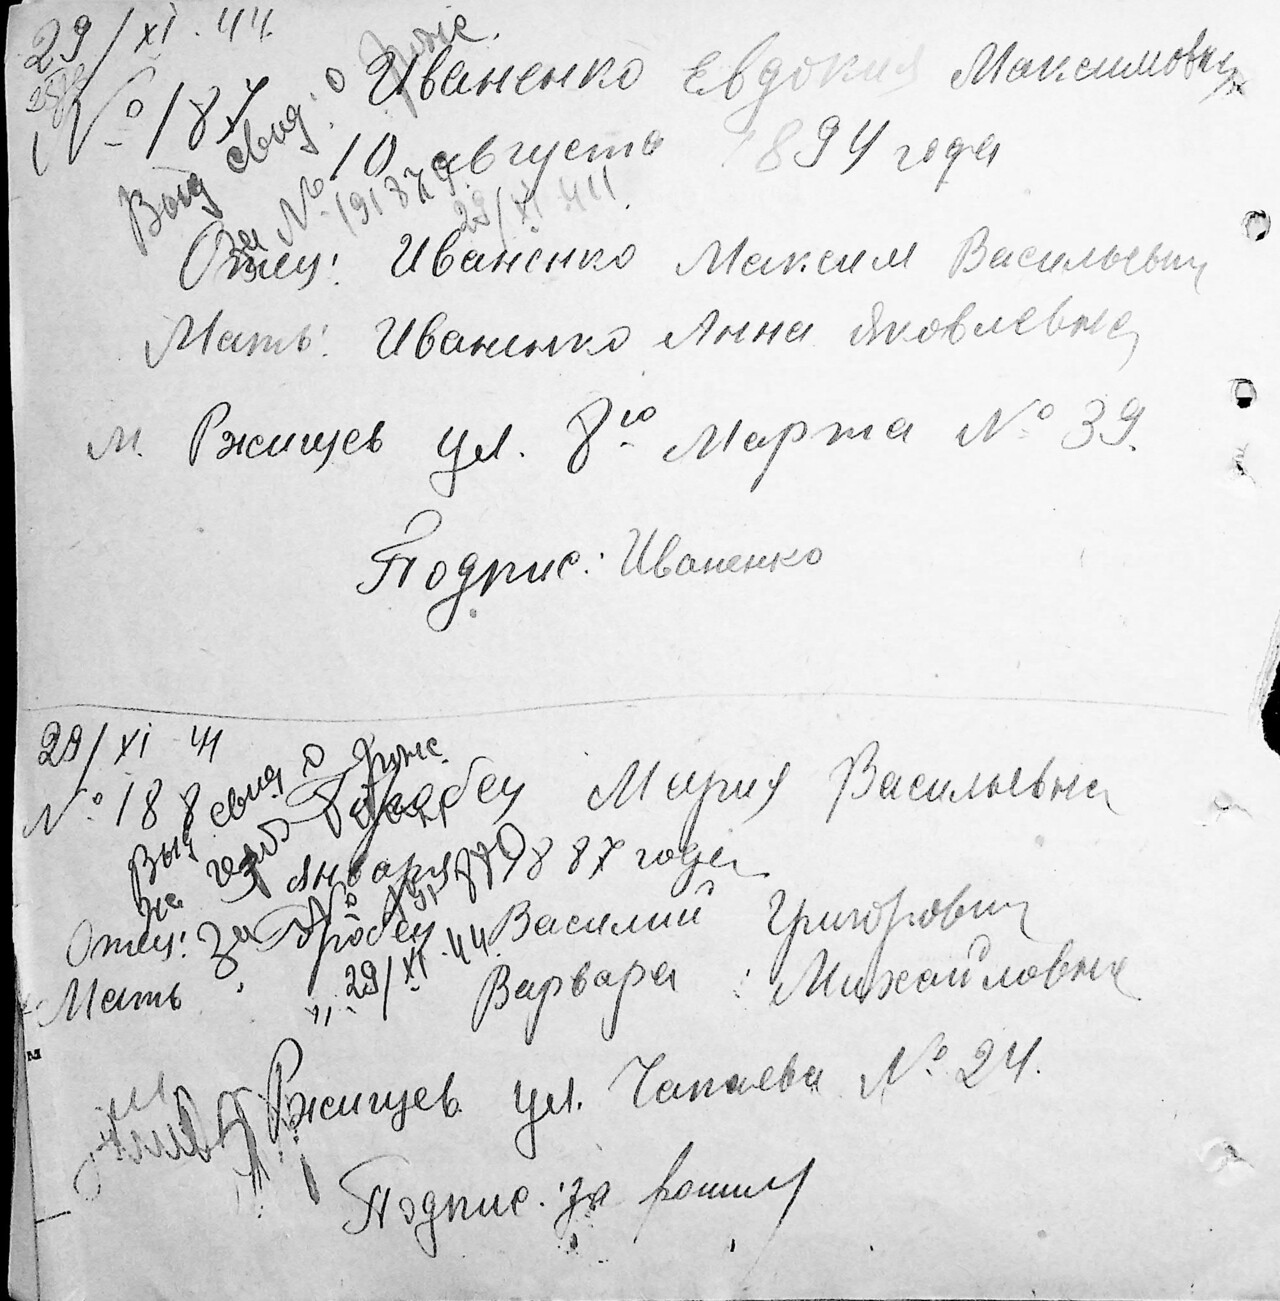 29/XI.44.
№ 187
Иваненко Евдокия Максимовна
10 августа 1894 года
Выд свид. о рожс.
за №
29/XI 44
Отец: Иваненко Максим Васильевич
Мать: Иваненко Анна Яковлевна
м. Ржищев ул. 8го Марта № 39.
Подпис: Иваненко
29/XI 44
№ 188
Мария Васильевна
января 1887 года
Выд свид о рожс.
за №
29/XI.44.
Отец: Василий Григорович
Мать Варвара Михайловна
Ржищев ул. Чапаева № 24.
Подпис: за